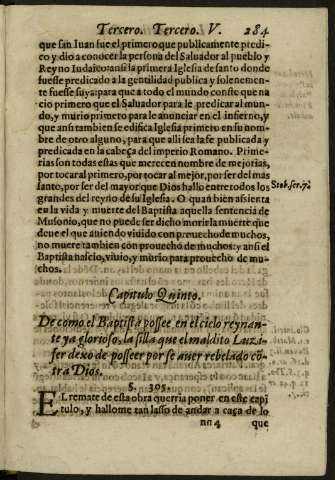 Tercero. Tercero. V. 284
que san Iuan fue el primero que publicamente predi-
co y dio a conocer la persona del Saluador al pueblo y
Reyno Iudaico: ansi la primera Iglesia de santo donde
fuesse predicado a la gentilidad publica y solenemen-
te fuesse suya: para que a todo el mundo conste que na
cio primero que el Saluador para le predicar al mun-
do, y murio primero para le anunciar en el infierno, y
que ansi tambien se edifica Iglesia primero en su nom-
bre de otro alguno, para que alli sea la fe publicada y
predicada en la cabeça del imperio Romano. Prime-
rias son todas estas que merecen nombre de mejorias,
por tocar al primero, por tocar al mejor, por ser del mas
santo, por ser del mayor que Dios hallo entre todos los
grandes del reyno de su Iglesia. O quan bien assienta
en la vida y muerte del Baptista aquella sentencia de
Musonio, que no puede ser dicho morir la muerte que
deue el que auiendo viuido con prouecho de muchos,
no muere tambien con prouecho de muchos: y ansi el
Baptista nascio, viuio, y murio para prouecho de mu-
chos.
Stob. ser. 7.
Capitulo Quinto.
De como el Baptista possee en el cielo reynan-
te ya glorioso, la silla que el maldito Luzi-
fer dexo de posseer por se auer rebelado cō-
tra Dios.
§. 395.
EL remate de esta obra querria poner en este capi
tulo, y hallome tan lasso de andar a caça de lo
nn 4 que